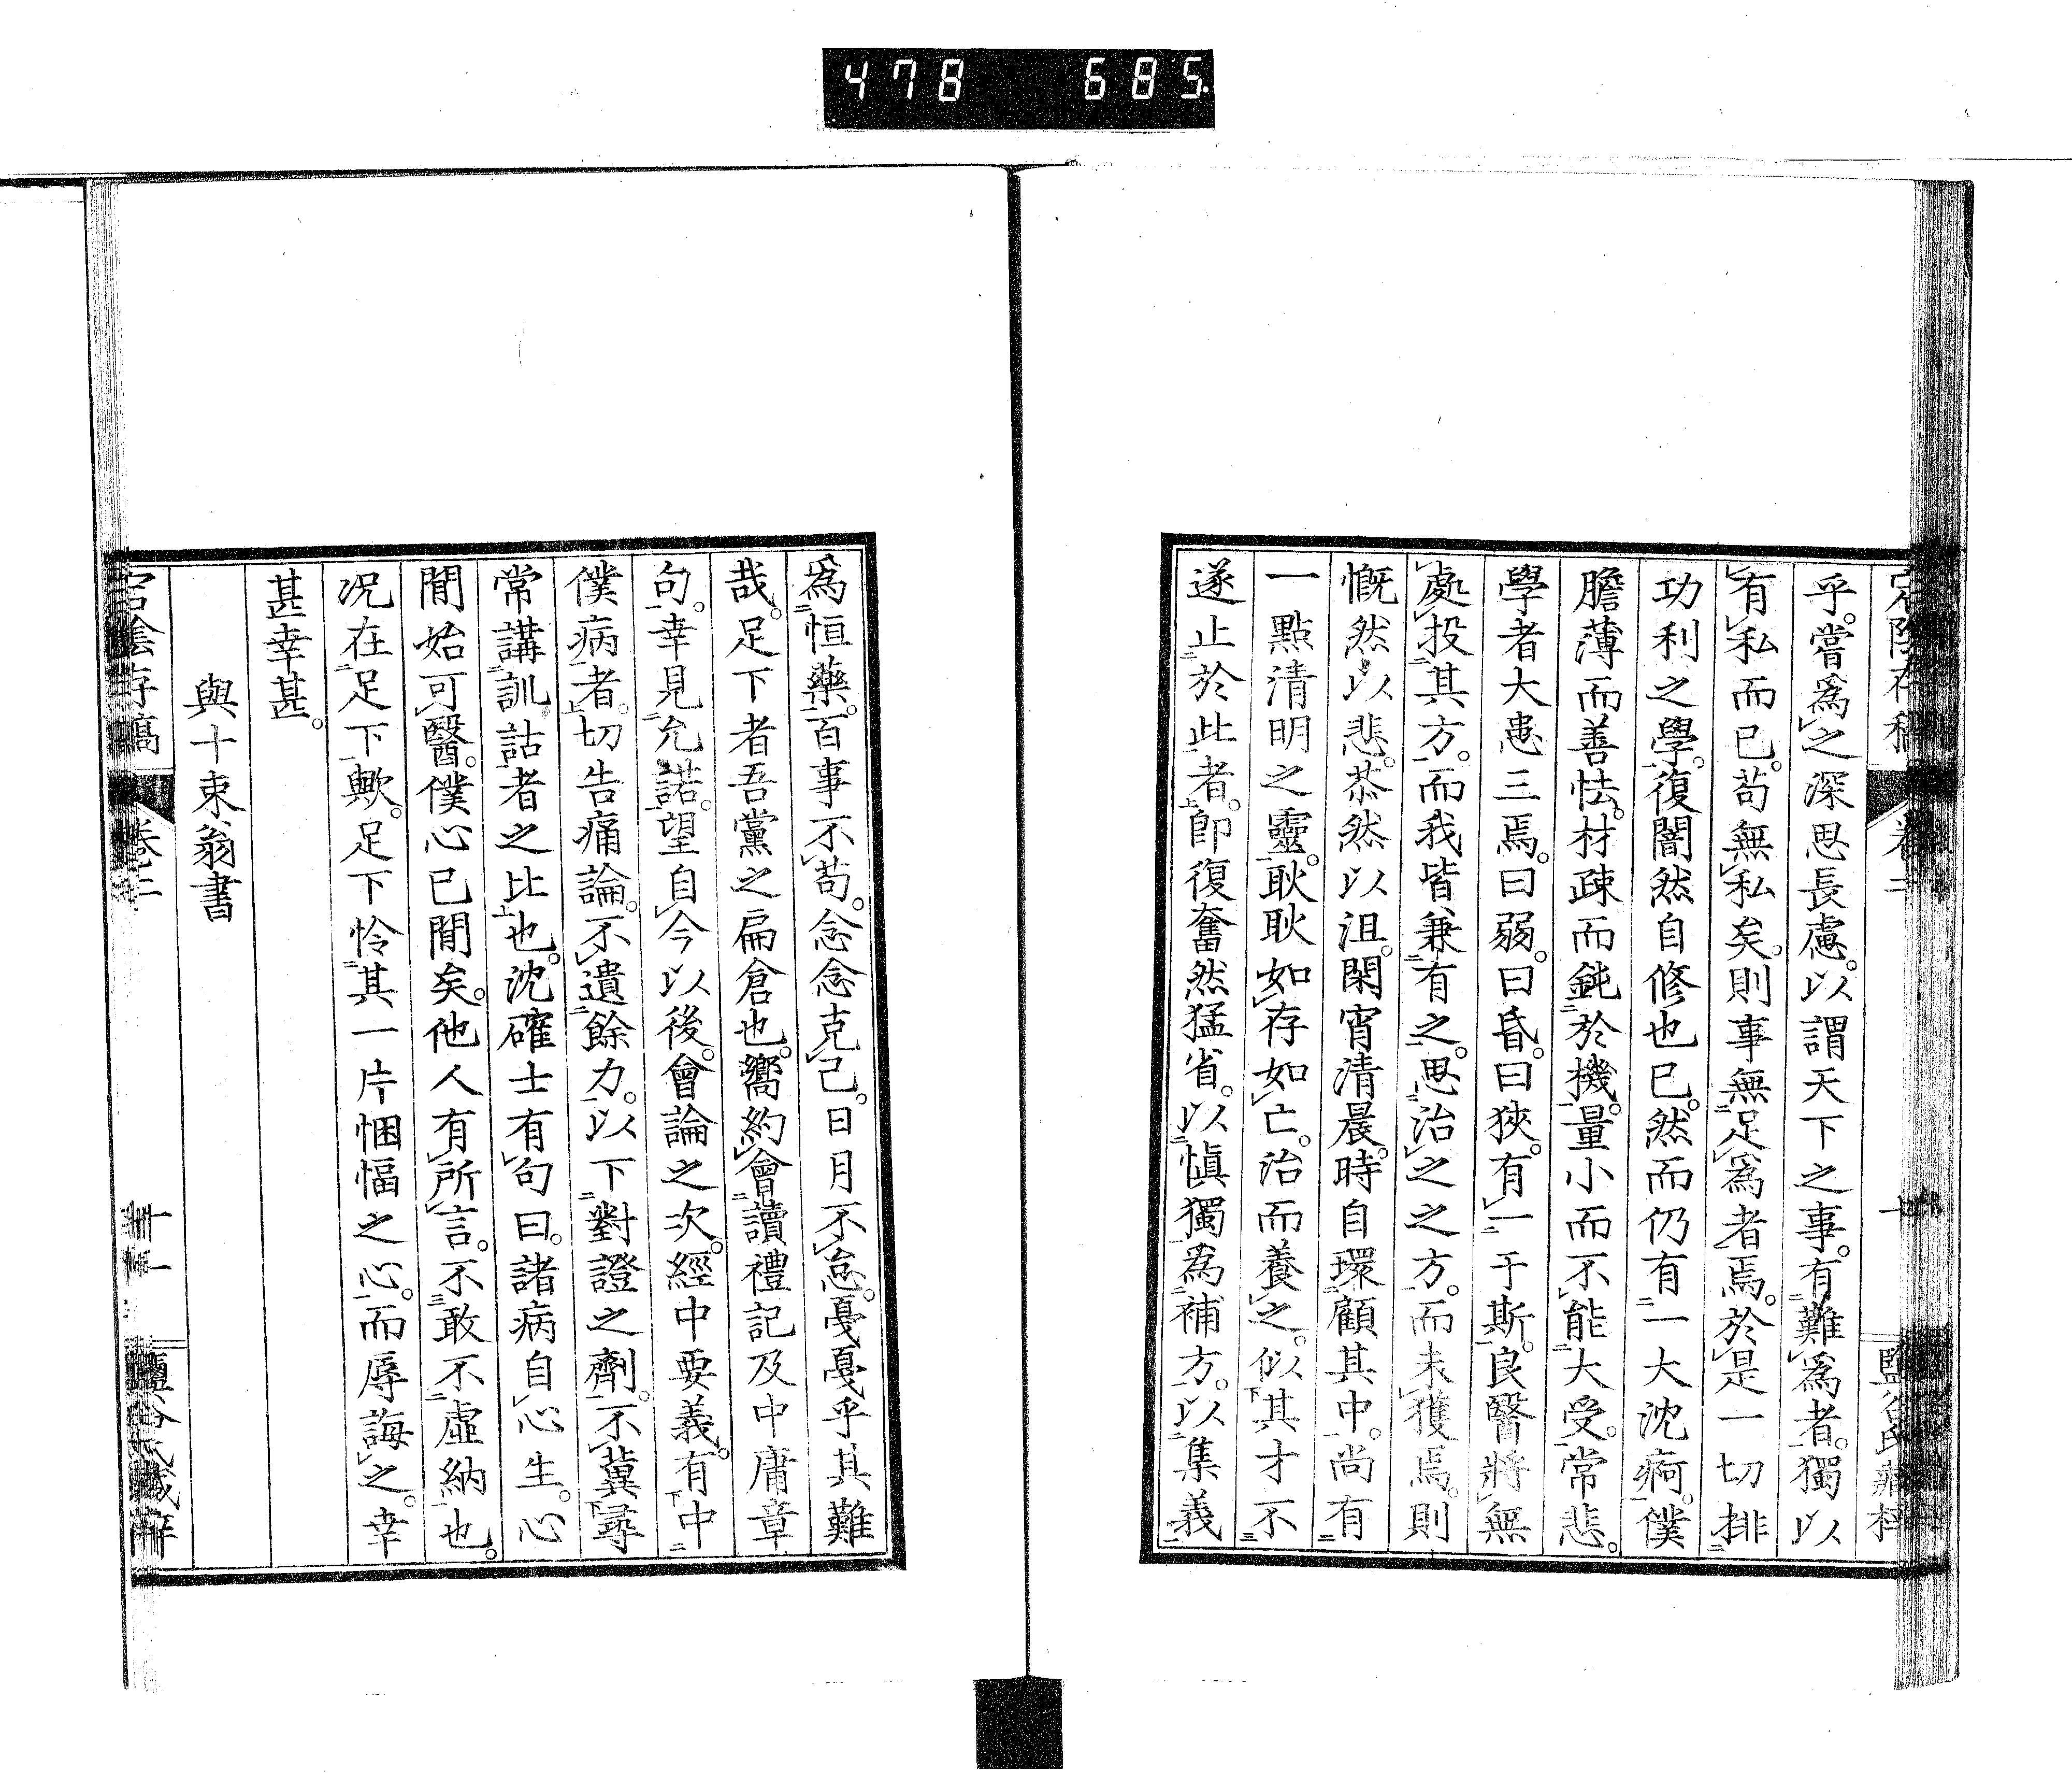 478 685
乎。嘗爲之深思長慮。以謂天下之事。有難爲者。獨以
有私而已。苟無私矣。則事無足爲者焉。於是一切排
功利之學。復闇然自修也已。然而仍有一大沈痾。僕
膽薄而善怯。材疎而鈍於機。量小而不能大受。常悲
學者大患三焉。曰弱。曰昏。曰狹。有一于斯。良醫將無
處投其方。而我皆兼有之。思治之之方。而未獲焉。則
慨然以悲。恭然以沮。閑宵清晨。時自環顧其中。尚有
一點清明之靈。耿耿如存如亡。治而養之。似其才不
遂止於此者。卽復奮然猛省。以愼獨爲補方。以集義
爲恒藥。百事不苟。念念克己。日月不怠。戞戞乎其難
哉。足下者吾黨之扁倉也。嚮約會讀禮記及中庸章
句。幸見允諾。望自今以後。會論之次。經中要義。有中
僕病者。切告痛論。不遺餘力。以下對證之劑。不冀尋
常講訓詁者之比也。沈確士有句曰。諸病自心生。心
閒始可醫。僕心已閒矣。他人有所言。不敢不虛納也。
况在足下歟。足下怜其一片悃愊之心。而辱誨之。幸
甚幸甚。
與十束翁書
宕陰存稿 卷三